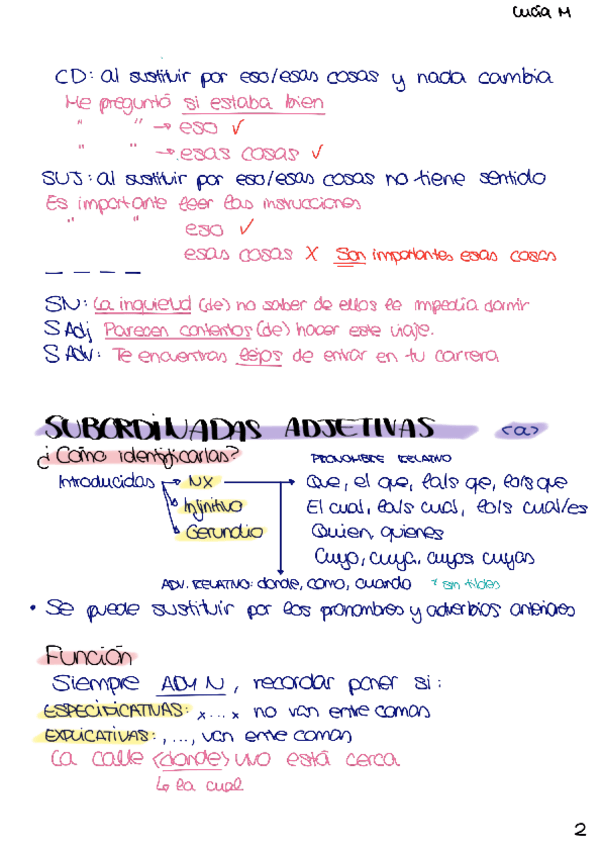 Lucía M
CD: al sustituir por eso/esas cosas y nada cambia
Me preguntó si estaba bien
" " → eso ✓
" " → esas cosas ✓
SUJ: al sustituir por eso/esas cosas no tiene sentido
Es importante leer las instrucciones
" " eso ✓
esas cosas X Son importantes esas cosas
SN: La inquietud (de) no saber de ellos le impedía dormir
S Adj Parecen contentos (de) hacer este viaje.
S ADV: Te encuentras lejos de entrar en tu carrera
SUBORDINADAS ADJETIVAS <a>
¿Cómo identificarlas? PRONOMBRE RELATIVO
Introducidas → NX → Que, el que, la/s que, lo/s que
Infinitivo El cual, la/s cual, lo/s cual/es
Gerundio Quien, quienes
Cuyo, cuya, cuyos, cuyas
ADV. RELATIVO: donde, como, cuando * sin tildes
• Se puede sustituir por los pronombres y adverbios anteriores
Función
Siempre ADY N, recordar poner si:
ESPECIDICATIVAS: x...x no van entre comas
EXPLICATIVAS: , ..., van entre comas
La calle <donde> vivo está cerca
↳ la cual
2